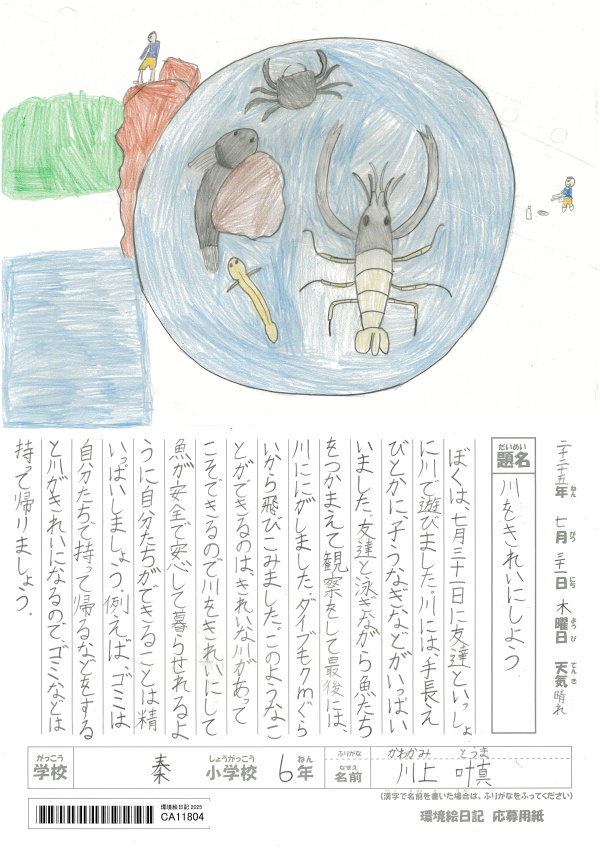 二千二十五年 七月 三十一日 木曜日 天気 晴れ
ねん がつ にち ようび てんき
だいめい
題名 川をきれいにしよう
ぼくは、七月三十一日に友達といっしょ
に川で遊びました。川には、手長え
びとかに、子うなぎなどがいっぱい
いました。友達と泳ぎながら魚たち
をつかまえて観察をして最後には、
川ににがしました。ダイブもクmぐら
いから飛びこみました。このようなこ
とができるのは、きれいな川があって
こそできるので川をきれいにして
魚が安全で安心して暮らせれるよ
うに自分たちができることは精
いっぱいしましょう。例えば、ゴミは
自分たちで持って帰るなどをする
と川がきれいになるので、ゴミなどは
持って帰りましょう。
がっこう しょうがっこう ねん ふりがな かわかみ とうま
学校 秦 小学校 6年 なまえ 名前 川上 叶真
(漢字で名前を書いた場合は、ふりがなをふってください)
環境絵日記 2025
CA11804
環境絵日記 応募用紙